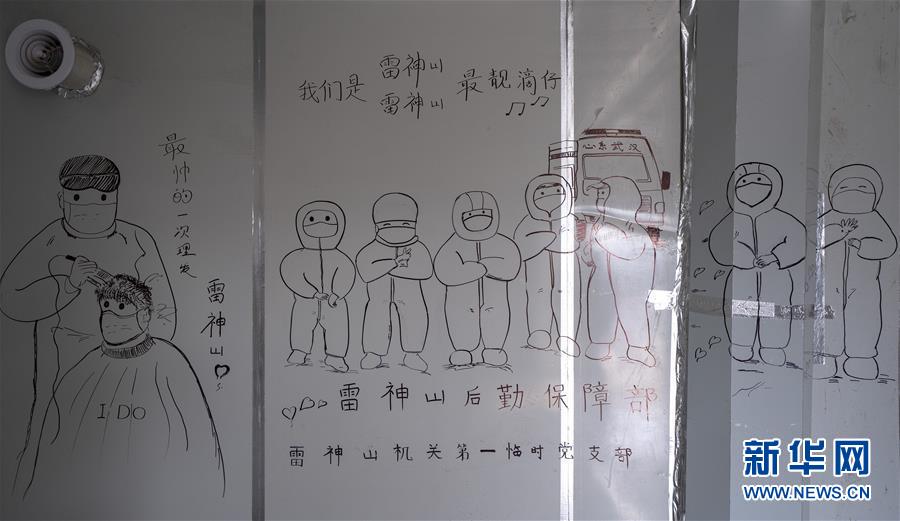 最帅的一次理发
雷神山
I DO
我们是
雷神山
雷神山
最靓滴仔
心系武汉
雷神山后勤保障部
雷神山机关第一临时党支部
新华网
WWW.NEWS.CN